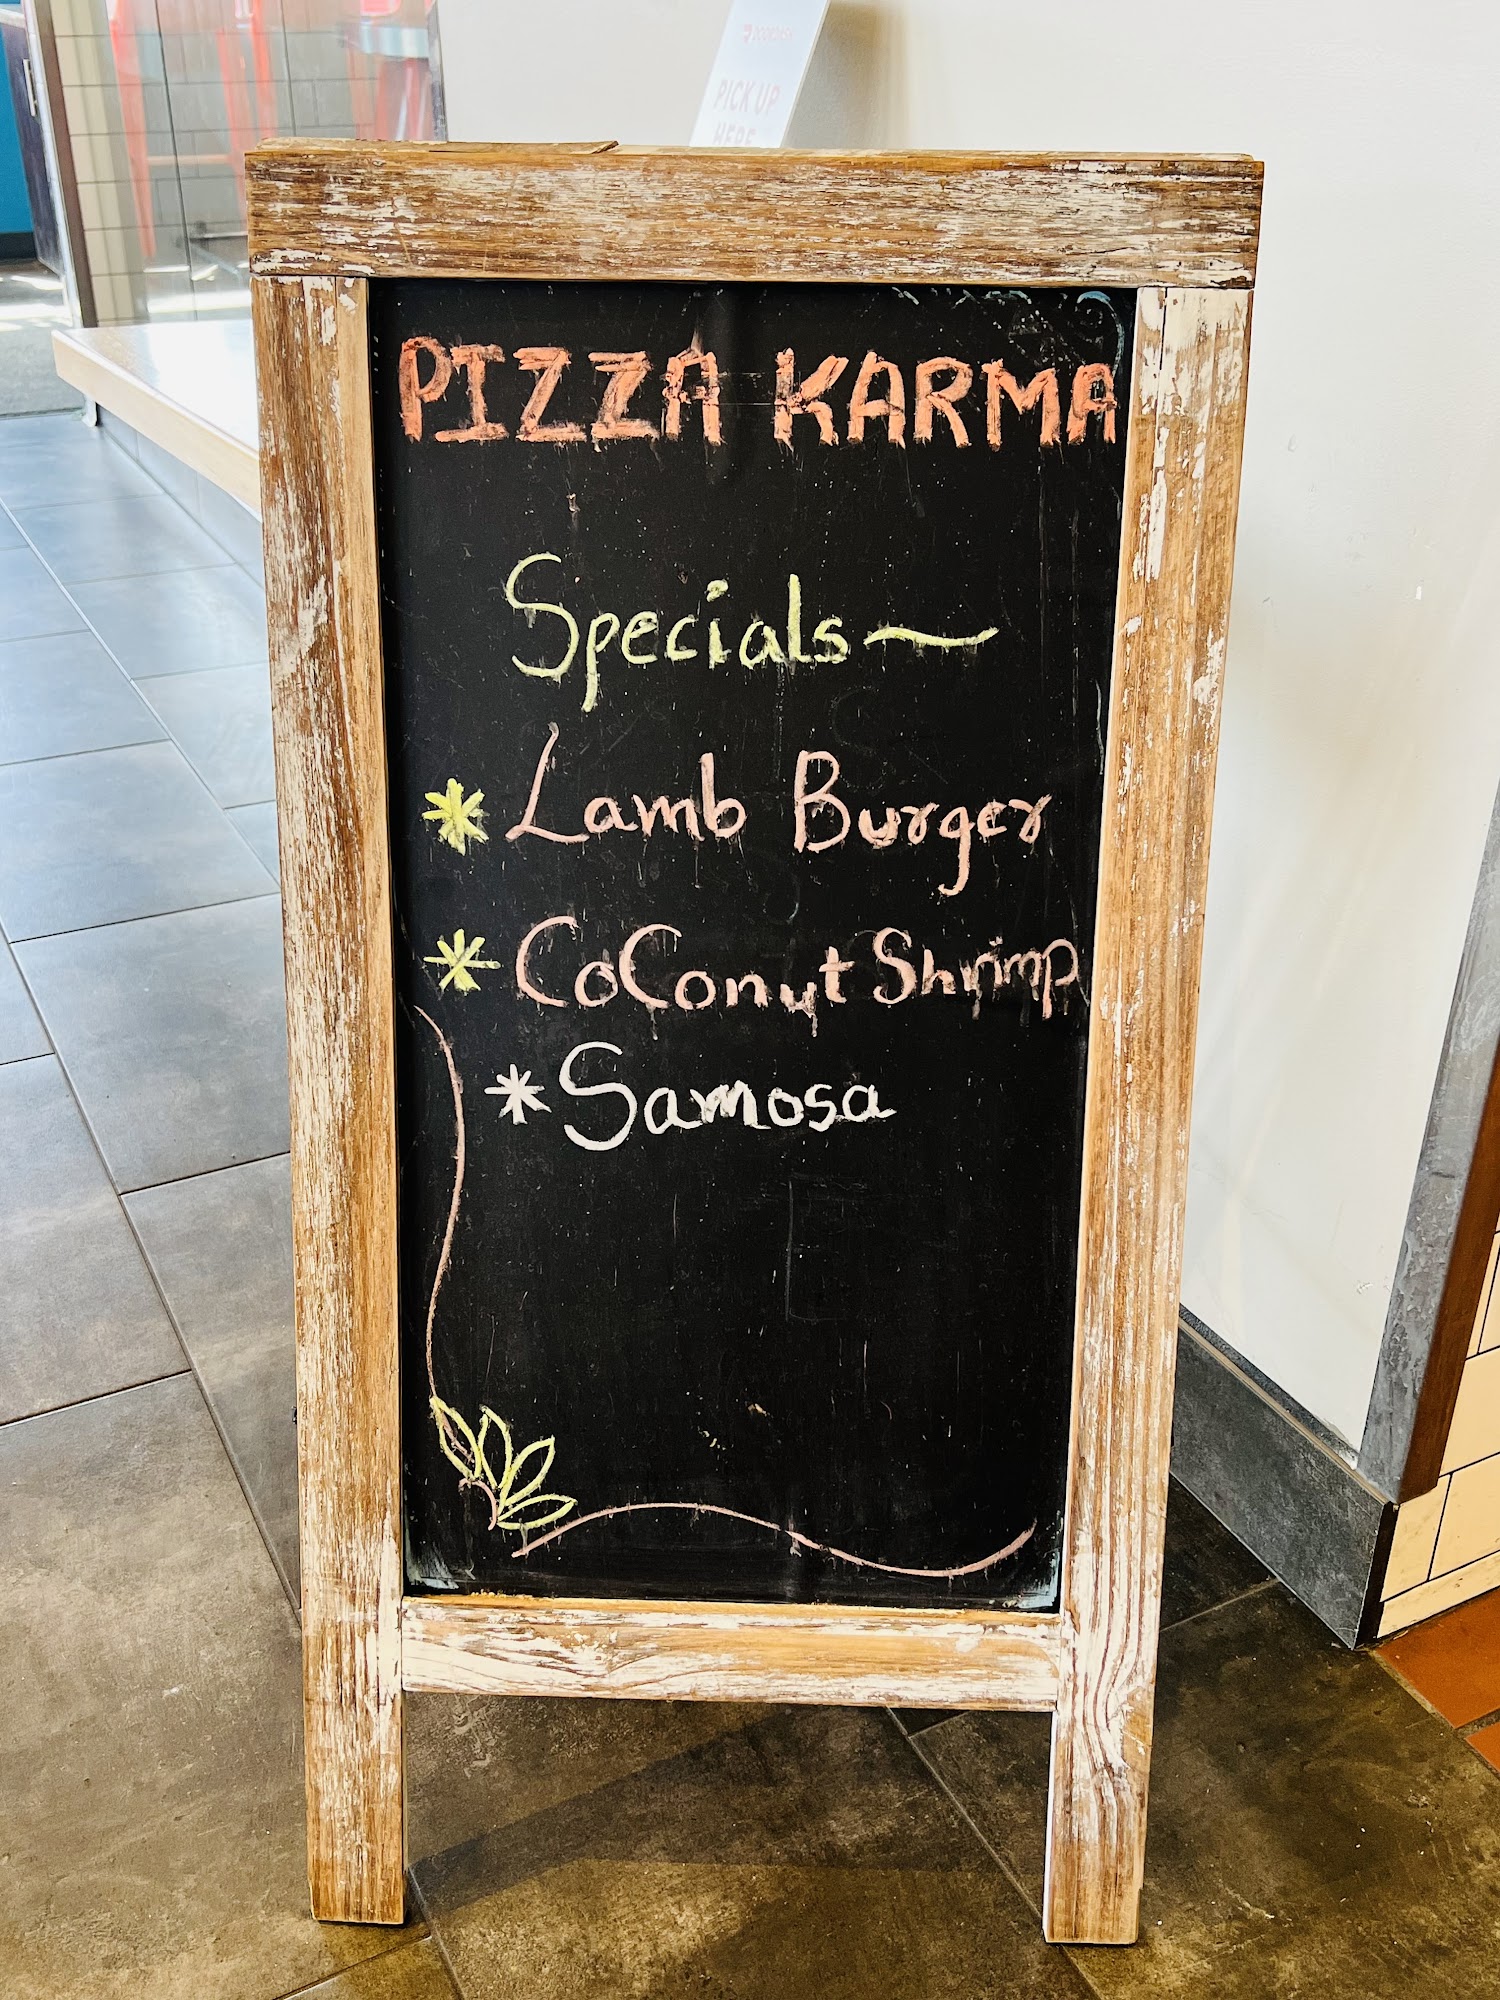 DOORDASH
PICK UP
HERE
PIZZA KARMA
Specials~
* Lamb Burger
* CoConut Shrimp
* Samosa